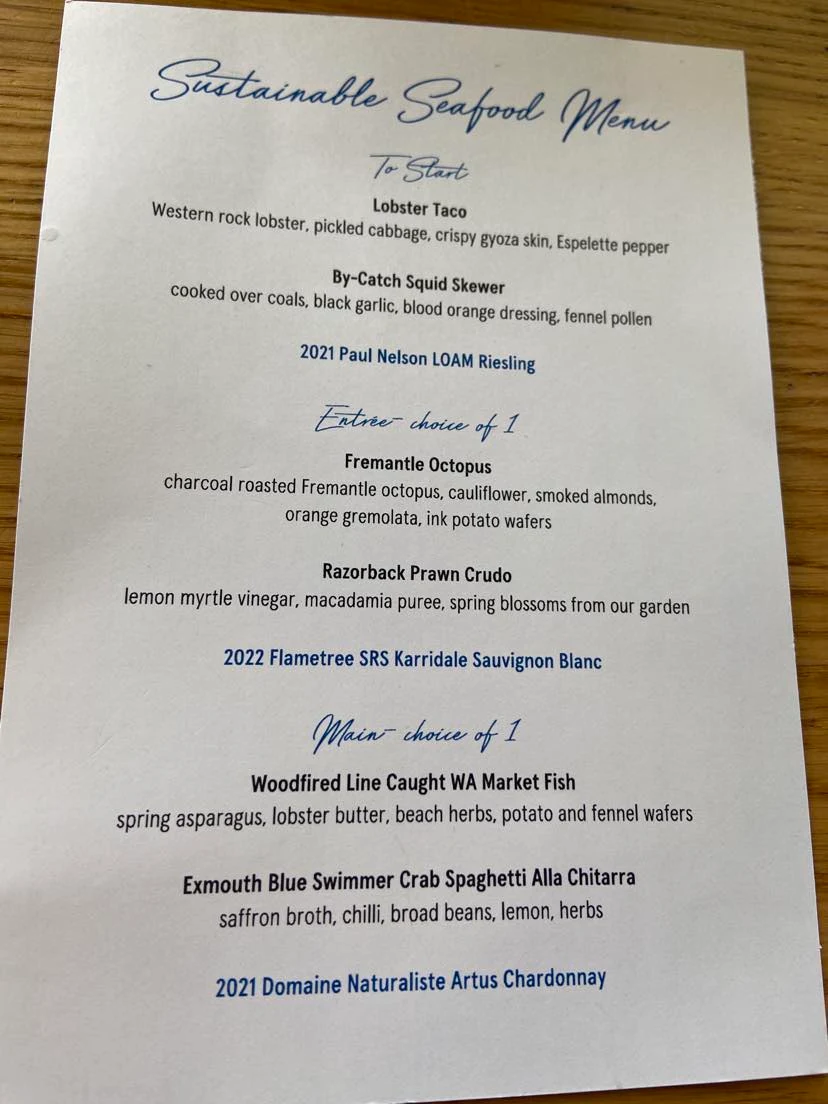 Sustainable Seafood Menu
To Start
Lobster Taco
Western rock lobster, pickled cabbage, crispy gyoza skin, Espelette pepper
By-Catch Squid Skewer
cooked over coals, black garlic, blood orange dressing, fennel pollen
2021 Paul Nelson LOAM Riesling
Entrée- choice of 1
Fremantle Octopus
charcoal roasted Fremantle octopus, cauliflower, smoked almonds,
orange gremolata, ink potato wafers
Razorback Prawn Crudo
lemon myrtle vinegar, macadamia puree, spring blossoms from our garden
2022 Flametree SRS Karridale Sauvignon Blanc
Main- choice of 1
Woodfired Line Caught WA Market Fish
spring asparagus, lobster butter, beach herbs, potato and fennel wafers
Exmouth Blue Swimmer Crab Spaghetti Alla Chitarra
saffron broth, chilli, broad beans, lemon, herbs
2021 Domaine Naturaliste Artus Chardonnay